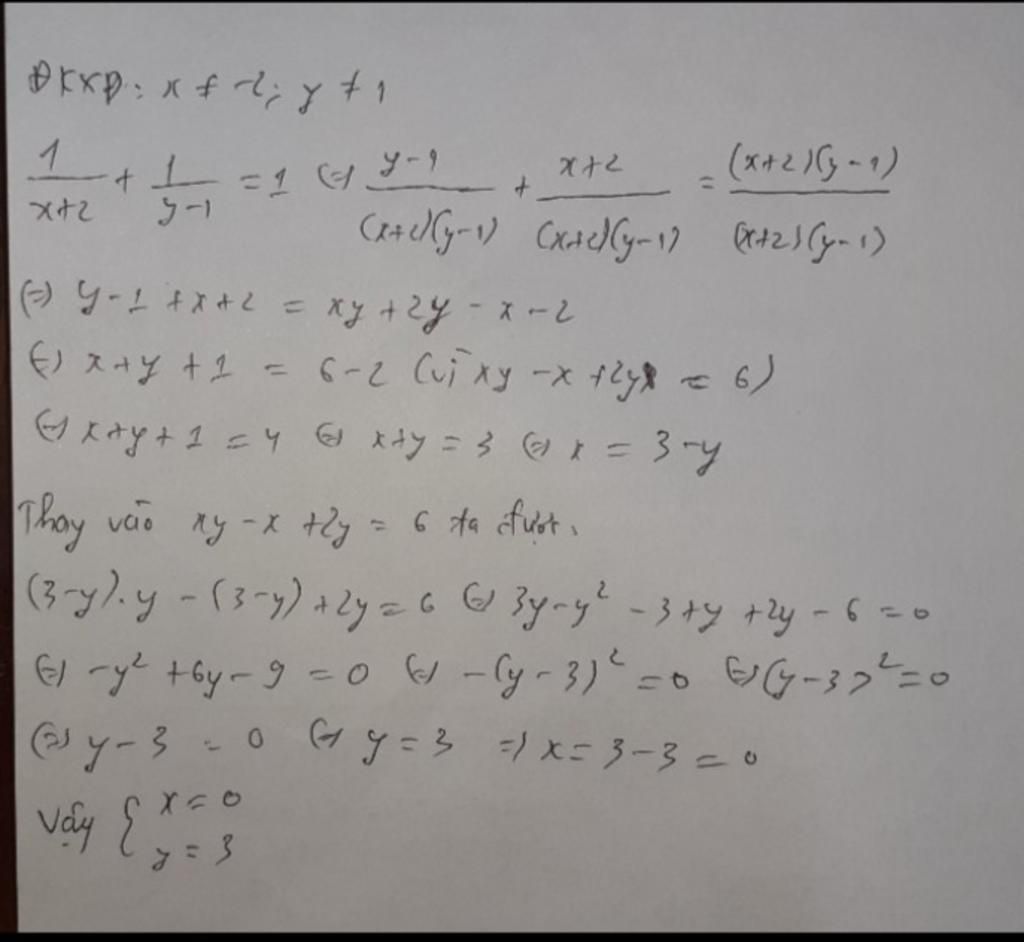 ĐKXĐ: x ≠ -2; y ≠ 1
1/(x+2) + 1/(y-1) = 1 (=) (y-1)/((x+2)(y-1)) + (x+2)/((x+2)(y-1)) = ((x+2)(y-1))/((x+2)(y-1))
(=) y-1 +x+2 = xy +2y - x - 2
(=) x+y +1 = 6-2 (vì xy -x +2y = 6)
(=) x+y+1 = 4 (=) x+y = 3 (=) x = 3-y
Thay vào xy - x +2y = 6 ta được.
(3-y).y - (3-y) +2y = 6 (=) 3y-y² - 3 +y +2y - 6 = 0
(=) -y² +6y - 9 = 0 (=) -(y-3)² = 0 (=) (y-3)² = 0
(=) y-3 = 0 (=) y = 3 =) x = 3-3 = 0
Vậy { x = 0
y = 3